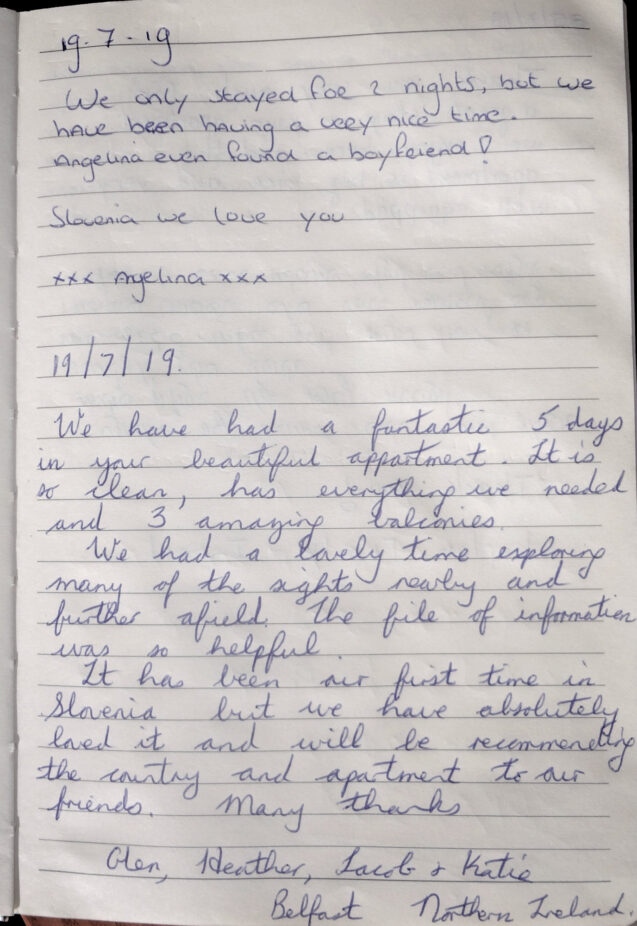 19.7.19
We only stayed for 2 nights, but we
have been having a very nice time.
Angelina even found a boyfriend!
Slovenia we love you
xxx Angelina xxx
19/7/19.
We have had a fantastic 5 days
in your beautiful appartment. It is
so clean, has everything we needed
and 3 amazing balconies.
We had a lovely time exploring
many of the sights nearby and
further afield. The file of information
was so helpful.
It has been our first time in
Slovenia but we have absolutely
loved it and will be recommending
the country and apartment to our
friends. Many thanks
Glen, Heather, Jacob & Katie
Belfast Northern Ireland.